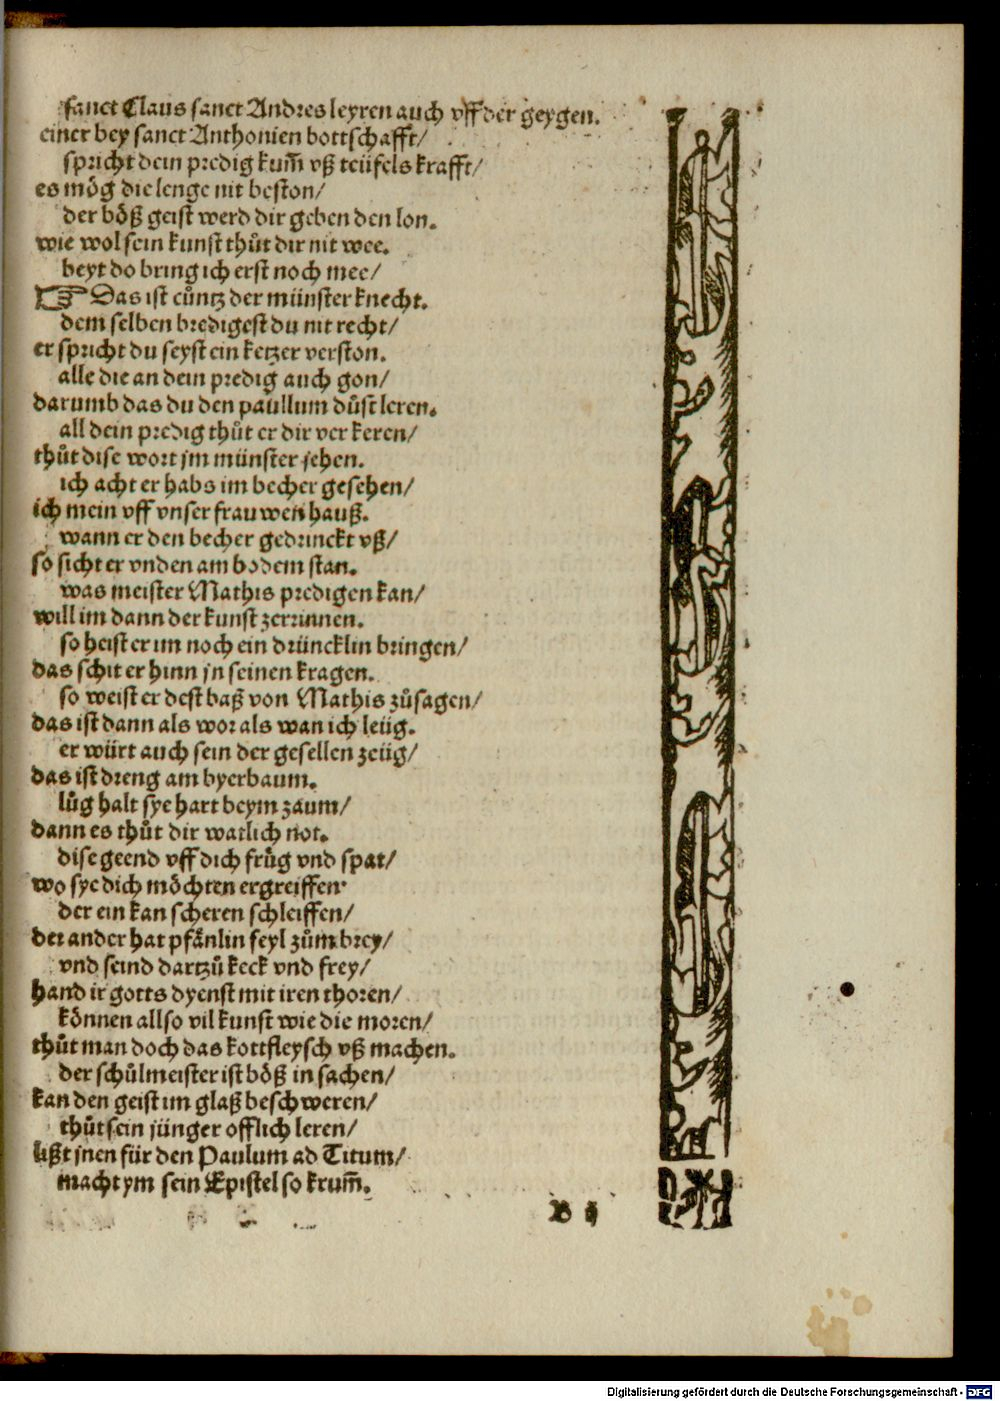 sanct Claus sanct Andres leyren auch vff der geygen.
einer bey sanct Anthonien bottschafft/
spricht dein predig kum̃ vß teüfels krafft/
es mög die lenge nit beston/
der böß geist werd dir geben den lon.
wie wol sein kunst thůt dir nit wee.
beyt do bring ich erst noch mee/
☞ Das ist cůntz der münster knecht.
dem selben bredigest du nit recht/
er spricht du seyst ein ketzer verston.
alle die an dein predig auch gon/
darumb das du den paullum důst leren.
all dein predig thůt er dir ver keren/
thůt dise wort jm münster jehen.
ich acht er habs im becher gesehen/
ich mein vff vnser frauwen hauß.
wann er den becher gedrinckt vß/
so sicht er vnden am bodem stan.
was meister Mathis predigen kan/
will im dann der kunst zerrinnen.
so heist er im noch ein drüncklin bringen/
das schit er hinn jn seinen kragen.
so weist er dest baß von Mathis zůsagen/
das ist dann als wor als wan ich leüg.
er würt auch sein der gesellen zeüg/
das ist dreng am byerbaum.
lůg halt sye hart beym zaum/
dann es thůt dir warlich not.
dise geend vff dich frůg vnd spat/
wo sye dich möchten ergreiffen·
der ein kan scheren schleiffen/
der ander hat pfänlin feyl zům brey/
vnd seind dartzů keck vnd frey/
hand ir gotts dyenst mit iren thoren/
können allso vil kunst wie die moren/
thůt man doch das kottfleysch vß machen.
der schůlmeister ist böß in sachen/
kan den geist im glaß beschweren/
thůt sein jünger offlich leren/
lißt jnen für den Paulum ad Titum/
macht ym sein Epistel so krum̃.
B ij
Digitalisierung gefördert durch die Deutsche Forschungsgemeinschaft - DFG